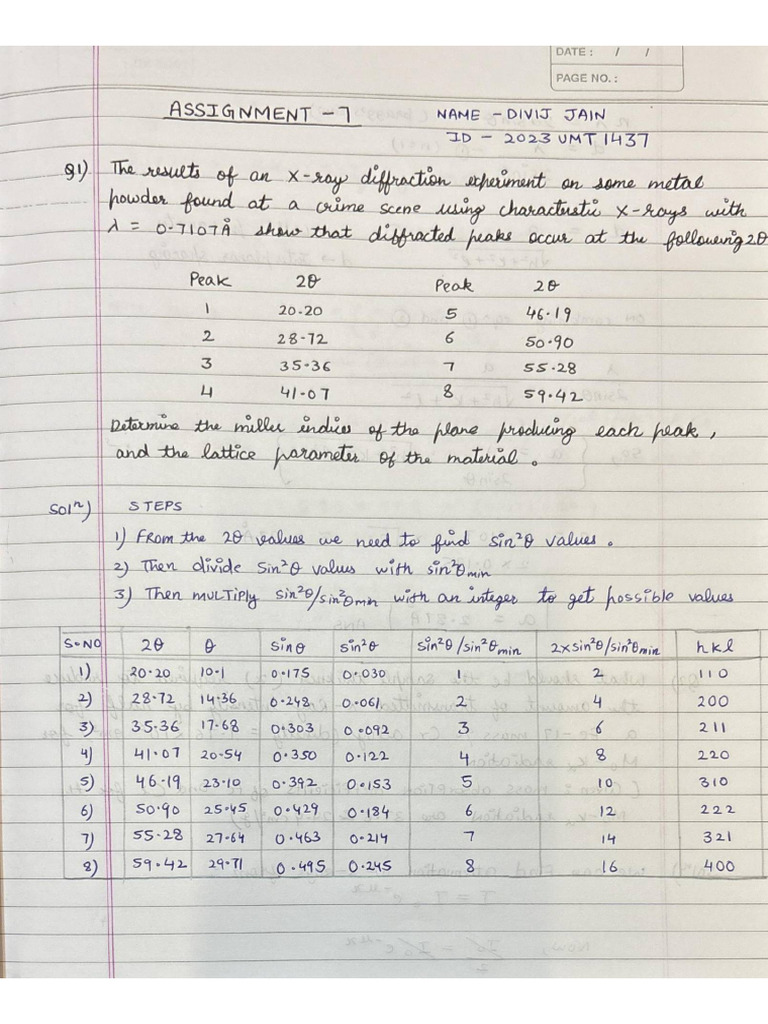 DATE : / /
PAGE NO. :
ASSIGNMENT - 7 NAME - DIVIJ JAIN
ID - 2023 UMT 1437
Q1) The results of an X-ray diffraction experiment on some metal
powder found at a crime scene using characteristic X-rays with
λ = 0.7107Å show that diffracted peaks occur at the following 2θ
Peak 2θ Peak 2θ
1 20.20 5 46.19
2 28.72 6 50.90
3 35.36 7 55.28
4 41.07 8 59.42
Determine the miller indices of the plane producing each peak,
and the lattice parameter of the material.
Solⁿ) STEPS
1) From the 2θ values we need to find sin²θ values.
2) Then divide Sin²θ values with sin²θmin
3) Then MULTIPly sin²θ/sin²θmin with an integer to get possible values
S.NO 2θ θ sinθ sin²θ sin²θ/sin²θmin 2xsin²θ/sin²θmin hkl
1) 20.20 10.1 0.175 0.030 1 2 110
2) 28.72 14.36 0.248 0.061 2 4 200
3) 35.36 17.68 0.303 0.092 3 6 211
4) 41.07 20.54 0.350 0.122 4 8 220
5) 46.19 23.10 0.392 0.153 5 10 310
6) 50.90 25.45 0.429 0.184 6 12 222
7) 55.28 27.64 0.463 0.214 7 14 321
8) 59.42 29.71 0.495 0.245 8 16 400